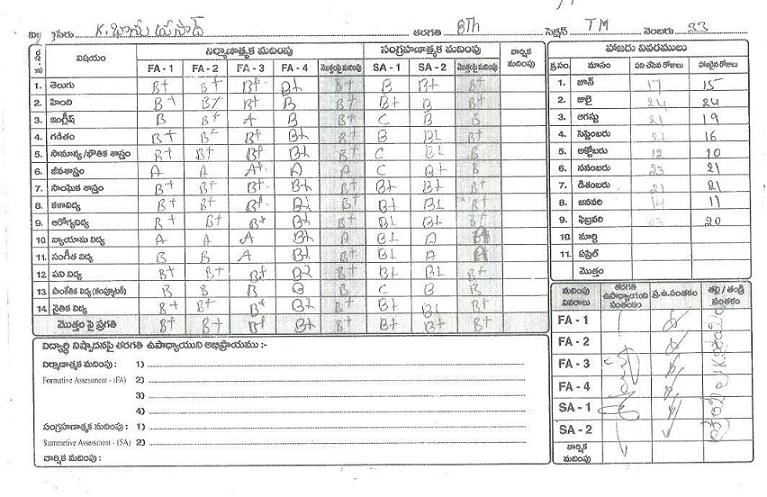 పేరు K. భాను ప్రసాద్ తరగతి 8Th సెక్షన్ TM నెంబరు 33
విషయం నిర్మాణాత్మక మదింపు సంగ్రహణాత్మక మదింపు వార్షిక మదింపు
FA - 1 FA - 2 FA - 3 FA - 4 మొత్తంపై మదింపు SA - 1 SA - 2 మొత్తంపై మదింపు
1. తెలుగు B+ B+ B+ B+ B+ B B+ B+
2. హింది B+ B+ B B+ B+ B B+
3. ఇంగ్లీష్ B B A B B C B B
4. గణితం B+ B+ B+ B+ B+ B B+ B+
5. సామాన్య /భౌతిక శాస్త్రం B+ B+ B+ B+ B+ C B B
6. జీవశాస్త్రం A A A+ A A C B+ B
7. సాంఘిక శాస్త్రం B+ B+ B+ B+ B+ B+ B+ B+
8. కళావిద్య B+ B+ B+ B+ B+ B+ B+ B+
9. ఆరోగ్యవిద్య B+ B+ B+ B+ B+ B+ B+
10. వ్యాయామ విద్య A A A B+ A B+ A
11. సంగీత విద్య B B A B+ B+ A A
12. పని విద్య B+ B+ B+ B+ B+ B+ B+
13. సాంకేతిక విద్య (కంప్యూటర్) B B B B B C B B
14. నైతిక విద్య B+ B+ B+ B+ B+ B+ B+ B+
మొత్తం పై ప్రగతి B+ B+ B+ B+ B+ B+ B+ B+
విద్యార్థి నిష్పాదనపై తరగతి ఉపాధ్యాయుని అభిప్రాయము :-
నిర్మాణాత్మక మదింపు : 1)
Formative Assessment - (FA) 2)
3)
4)
సంగ్రహణాత్మక మదింపు : 1)
Summetive Assessment - (SA) 2)
వార్షిక మదింపు :
హాజరు వివరములు
క్ర.సం. మాసం పని చేసిన రోజులు హాజరైన రోజులు
1. జూన్ 17 15
2. జులై 24 24
3. ఆగష్టు 21 19
4. సెప్టెంబరు 16
5. అక్టోబరు 12 10
6. నవంబరు 23 21
7. డిశంబరు 21 21
8. జనవరి 14 11
9. ఫిబ్రవరి 23 20
10. మార్చి
11. ఏప్రిల్
మొత్తం
మదింపు వివరాలు తరగతి ఉపాధ్యాయుని సంతకం ప్ర.ఉ.సంతకం తల్లి / తండ్రి సంతకం
FA - 1
FA - 2
FA - 3
FA - 4
SA - 1
SA - 2
వార్షిక మదింపు